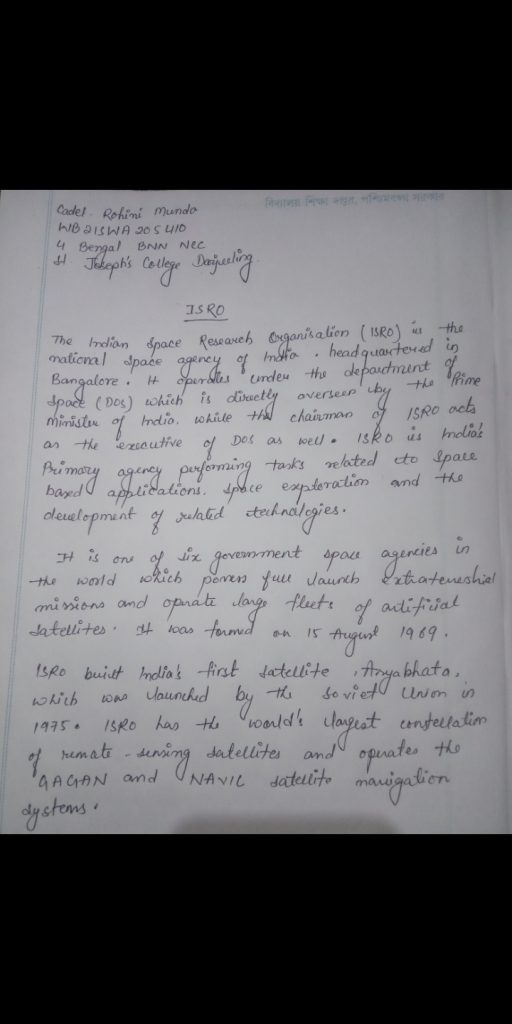 বিদ্যালয় শিক্ষা দপ্তর, পশ্চিমবঙ্গ সরকার
Cadet. Rohini Munda
WB21SWA205410
4 Bengal BNN NCC
St. Joseph's College Darjeeling.
ISRO
The Indian Space Research Organisation (ISRO) is the
national space agency of India. headquartered in
Bangalore. It operates under the department of
Space (DOS) which is directly overseen by the Prime
minister of India. while the chairman of ISRO acts
as the executive of DOS as well. ISRO is India's
Primary agency performing tasks related to Space
based applications. space exploration and the
development of related technologies.
It is one of six government space agencies in
the world which full launch extraterrestrial
missions and operate large fleets of artificial
satellites. It was formed on 15 August 1969.
ISRO built India's first satellite, Aryabhata,
which was launched by the Soviet Union in
1975. ISRO has the world's largest constellation
of remote-sensing satellites and operates the
GAGAN and NAVIC satellite navigation
systems.